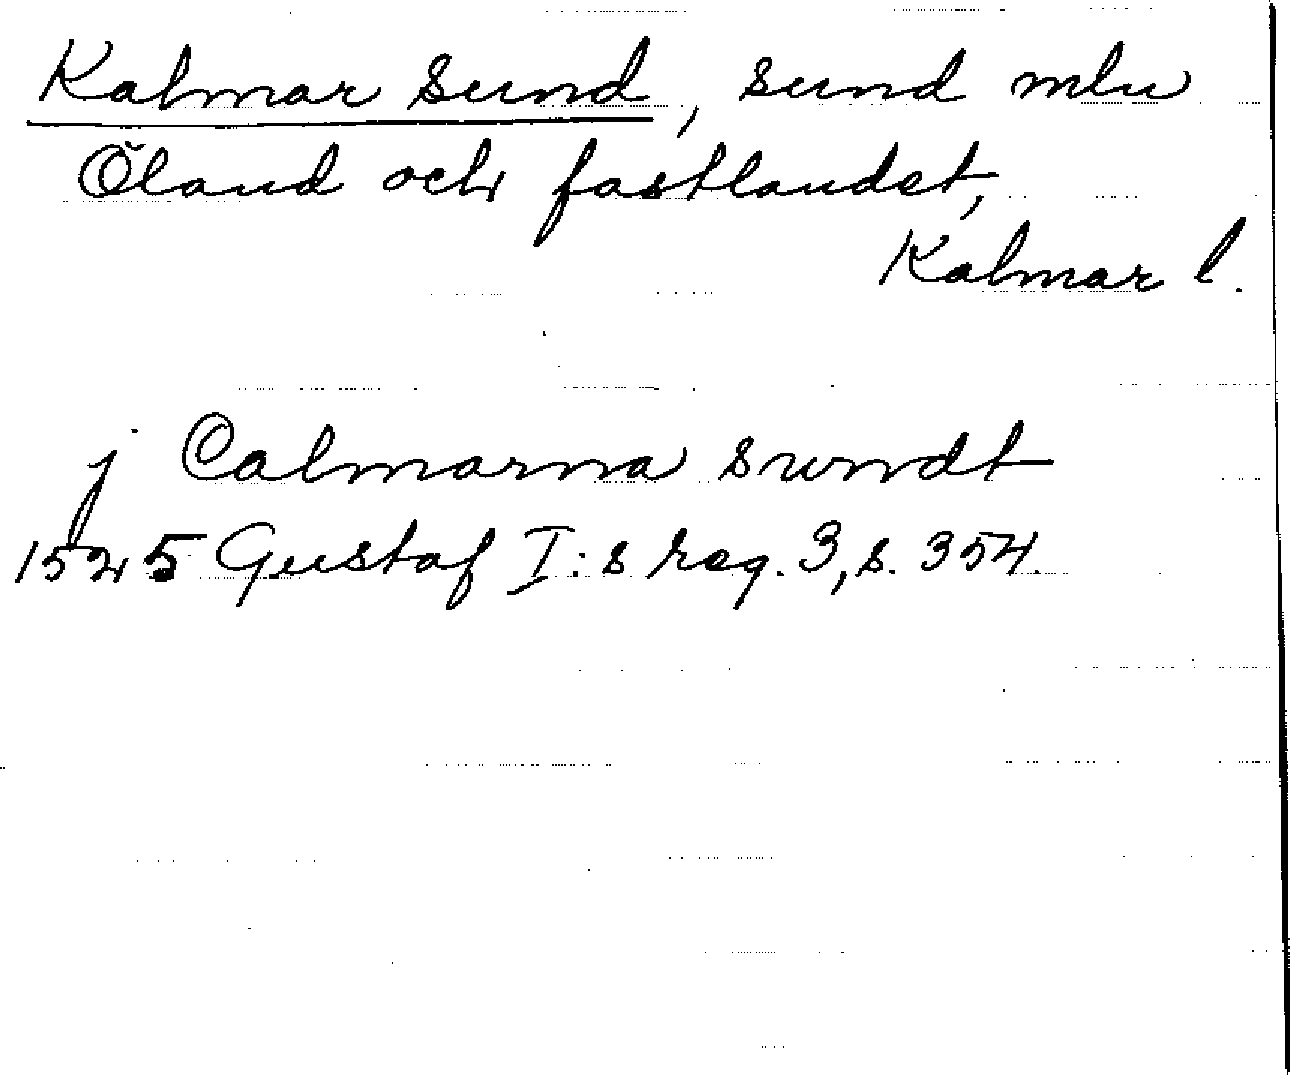 Kalmar Sund, sund mlu
Öland och fastlandet,
Kalmar l.
j Calmarna swndt
1525 Gustaf I:s reg. 3, s. 354.